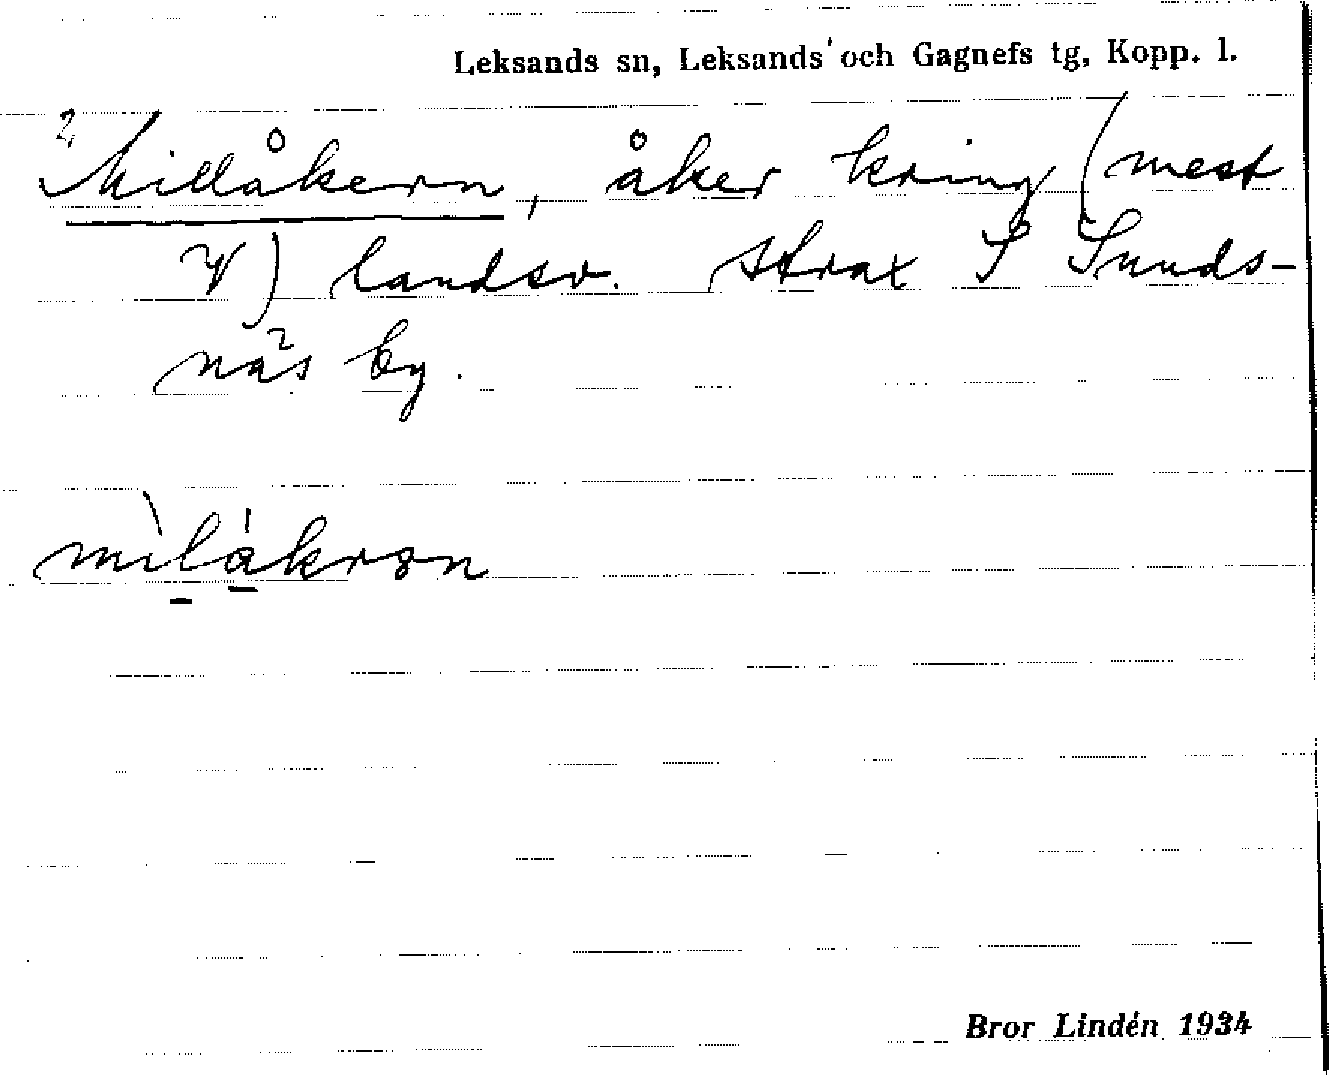 Leksands sn, Leksands och Gagnefs tg, Kopp. l.
2 Millåkern, åker kring (mest
V) landsv. strax S Sunds-
näs by.
mìlákrən
Bror Lindén 1934